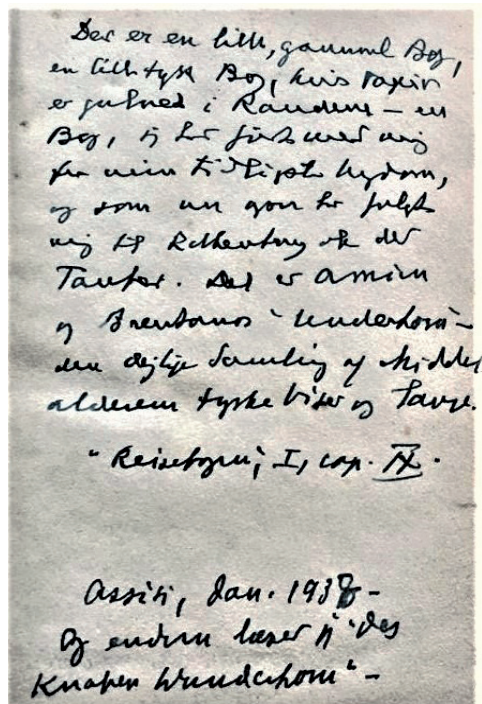 Der er en lille, gammel Bog,
en lille tysk Bog, hvis Papir
er gulnet i Randene – en
Bog, jeg har ført med mig
fra min tidligste Ungdom,
og som en gang har fulgt
mig til Rothenburg ob der
Tauber. Det er Arnim
og Brentanos "Wunderhorn" –
den dejlige Samling af Middel
alderens tyske Viser og Sange.
"Rejsebogen", I, cap. IX.
Assisi, Jan. 1938 –
Og endnu læser jeg "Des
Knaben Wunderhorn" –